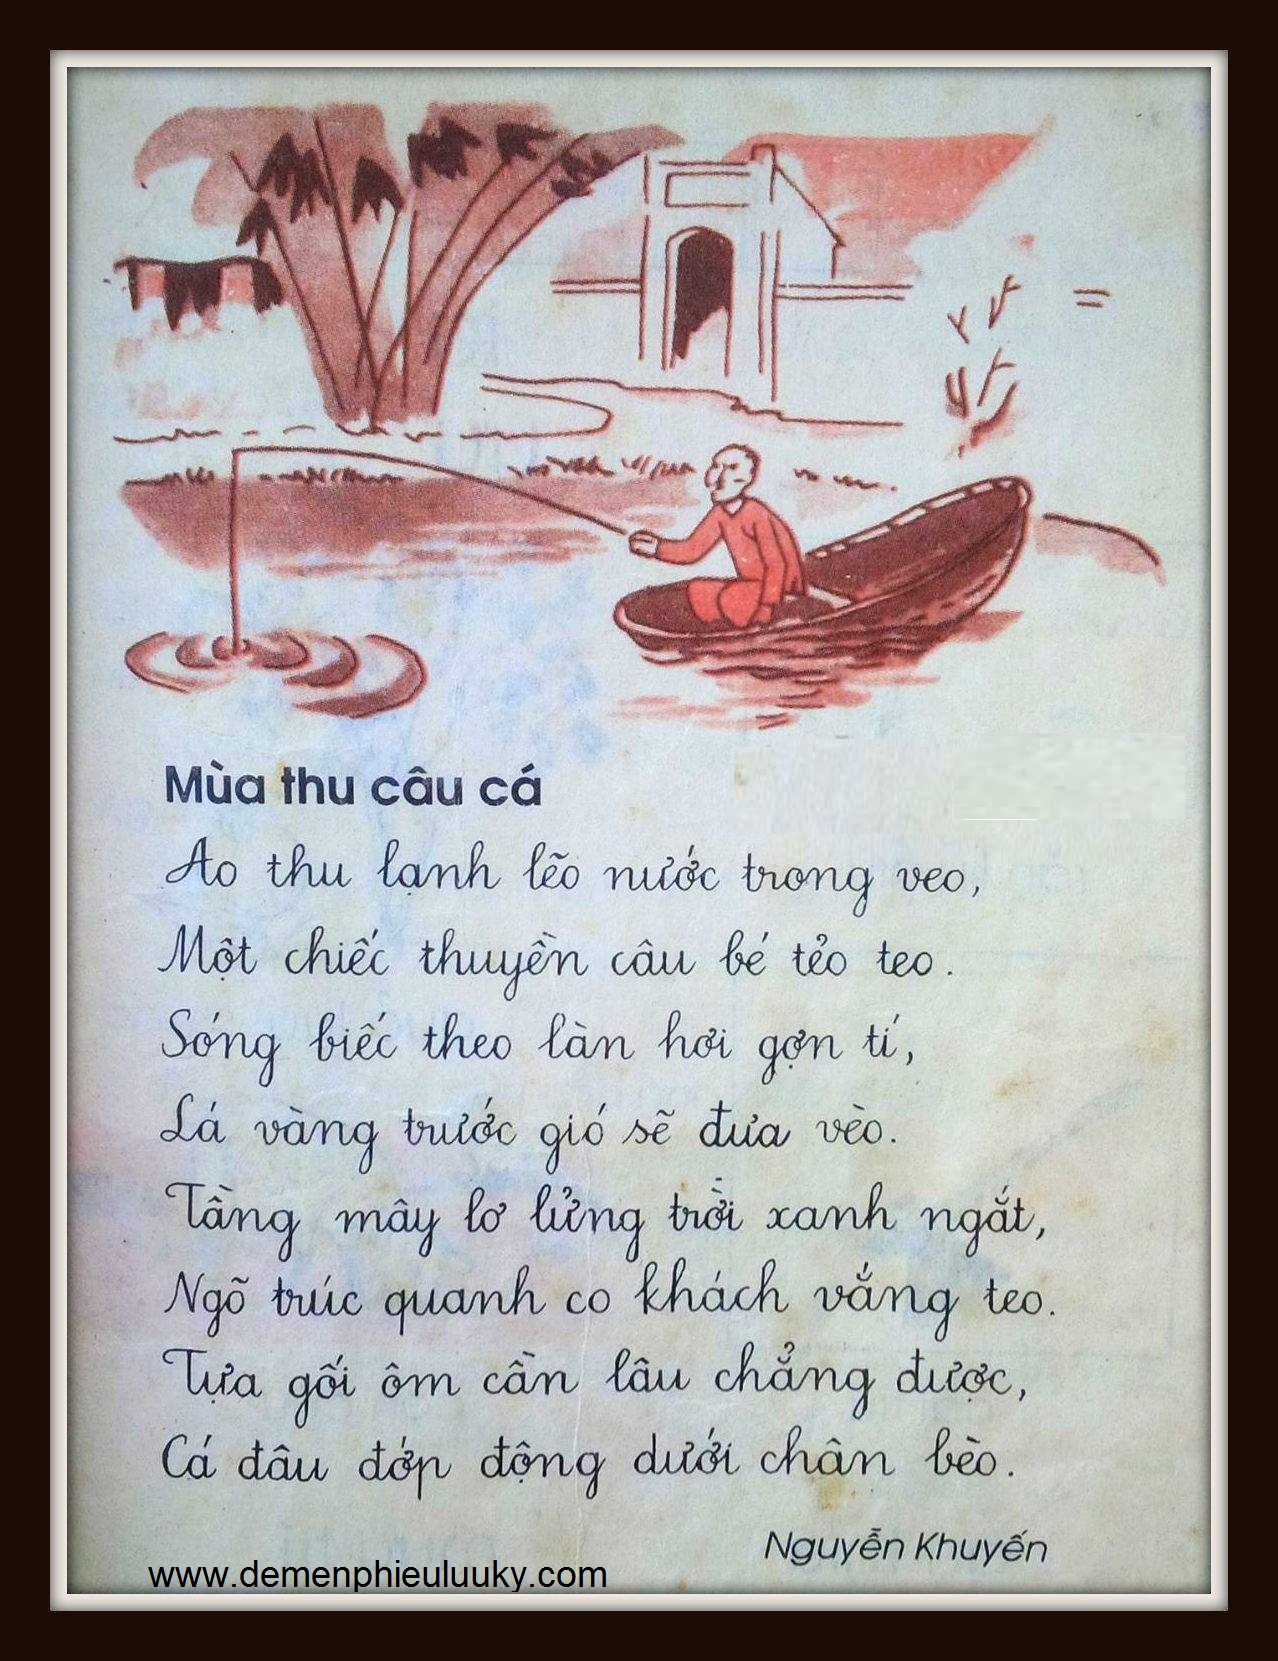 Mùa thu câu cá
Ao thu lạnh lẽo nước trong veo,
Một chiếc thuyền câu bé tẻo teo.
Sóng biếc theo làn hơi gợn tí,
Lá vàng trước gió sẽ đưa vèo.
Tầng mây lơ lửng trời xanh ngắt,
Ngõ trúc quanh co khách vắng teo.
Tựa gối ôm cần lâu chẳng được,
Cá đâu đớp động dưới chân bèo.
Nguyễn Khuyến
www.demenphieuluuky.com